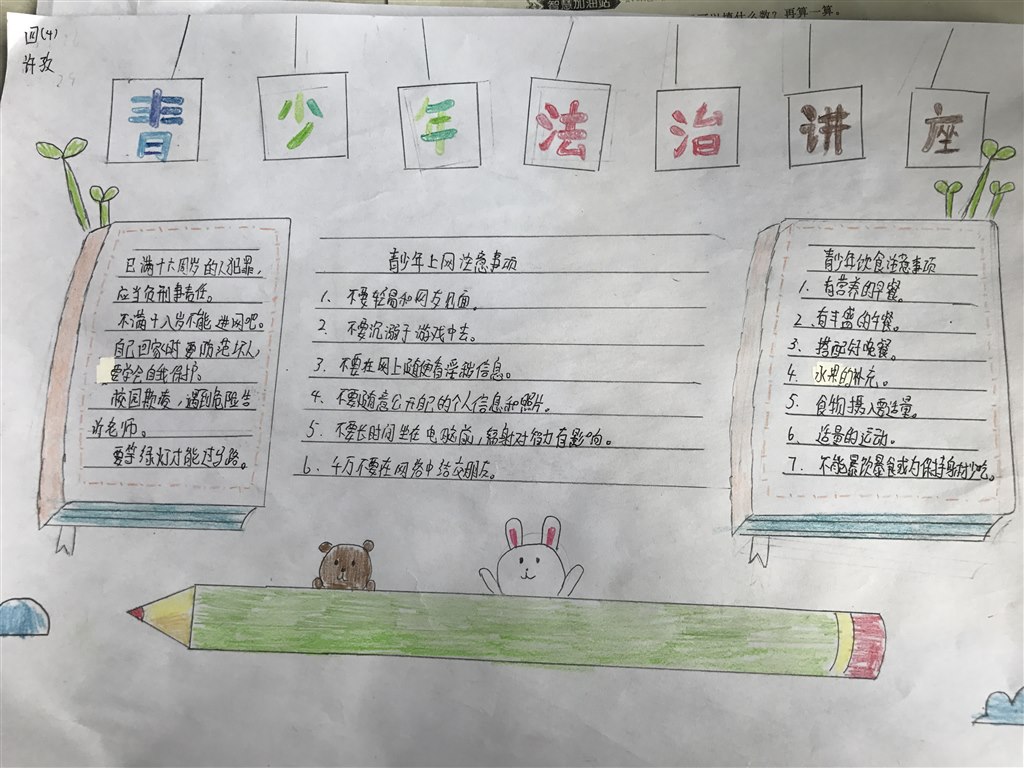 智慧加油站
可以填什么数？再算一算。
四(4)
许孜
青少年法治讲座
已满十六周岁的人犯罪，
应当负刑事责任。
不满十八岁不能进网吧。
自己回家时要防范坏人，
要学会自我保护。
校园欺凌，遇到危险告
诉老师。
要等绿灯才能过马路。
青少年上网注意事项
1、不要轻易和网友见面。
2、不要沉溺于游戏中去。
3、不要在网上随便看淫秽信息。
4、不要随意公开自己的个人信息和照片。
5、不要长时间坐在电脑前，辐射对智力有影响。
6、千万不要在网络中结交朋友。
青少年饮食注意事项
1、有营养的早餐。
2、有丰盛的午餐。
3、搭配好晚餐。
4、水果的补充。
5、食物摄入要适量。
6、适量的运动。
7、不能暴饮暴食或为保持身材少吃。